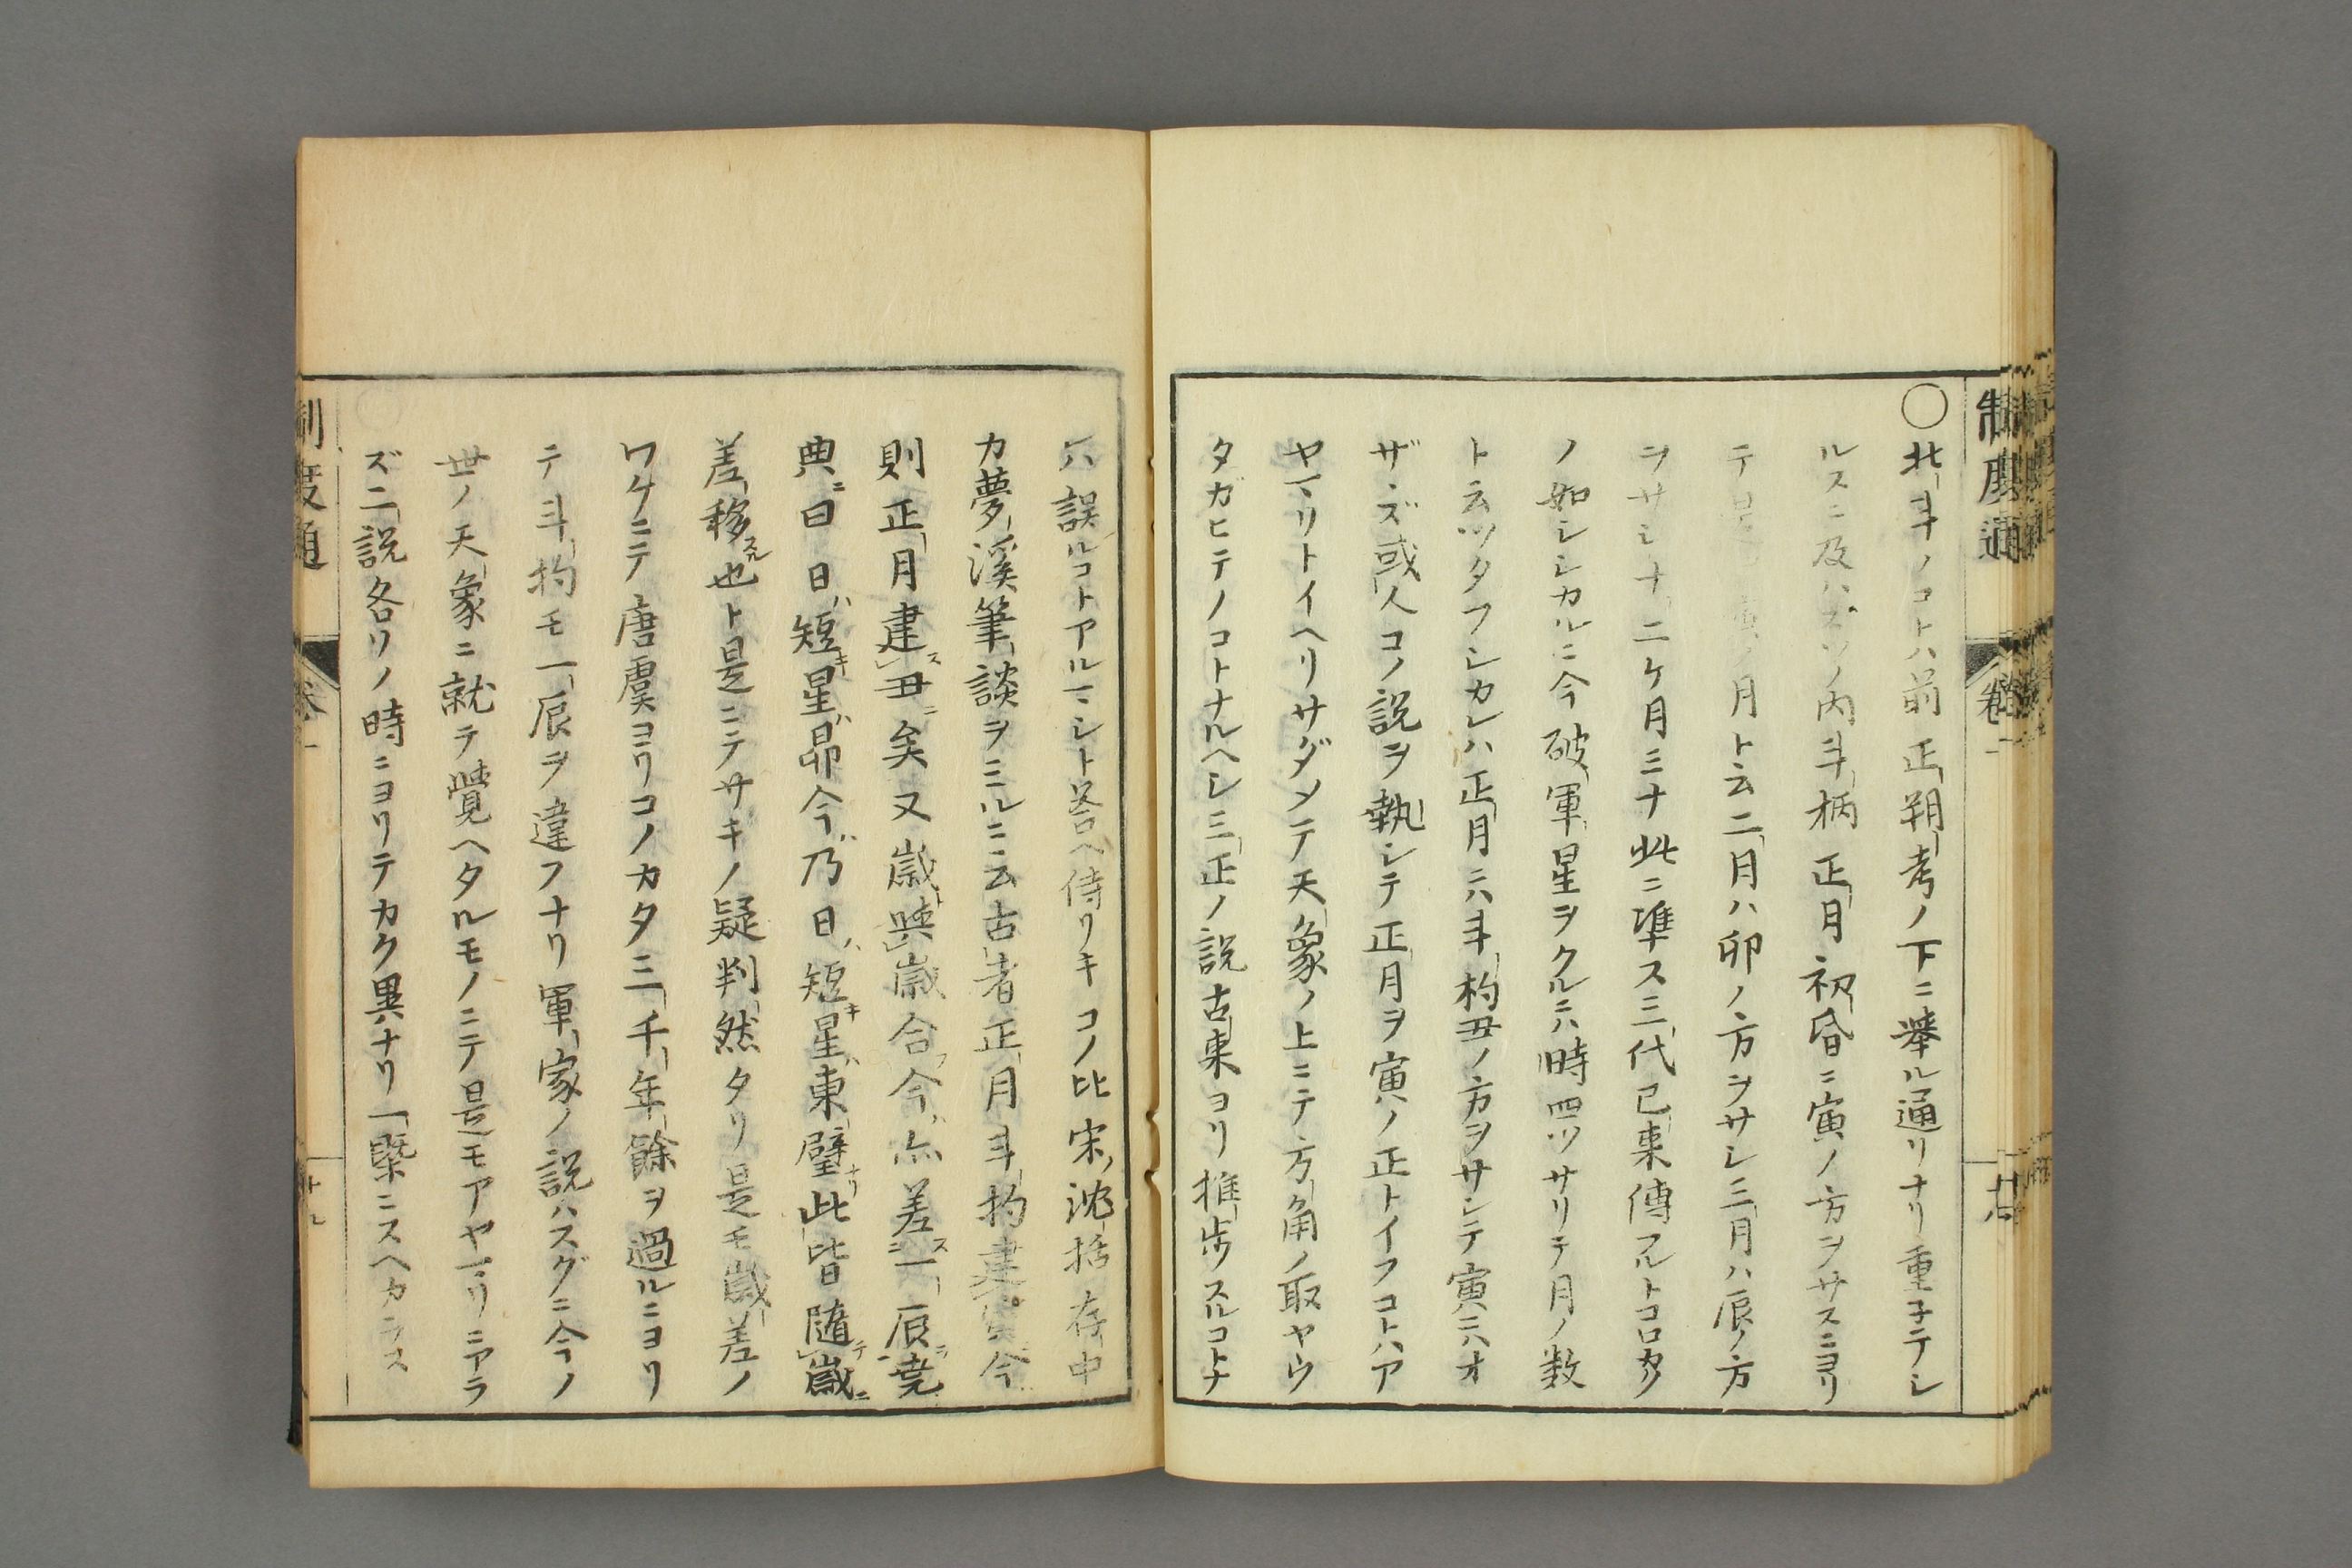 制度通
卷一
十八
〇北斗ノコトハ前正朔考ノ下ニ擧ル通リナリ重子テシ
ルスニ及ハズソノ内斗柄正月初昏ニ寅ノ方ヲサスニヨリ
テ是ヲ寅ノ月ト云二月ハ卯ノ方ヲサシ三月ハ辰ノ方
ヲサシ十二ケ月ミナ此ニ準ス三代已來傳フルトコロカク
ノ如シシカルニ今破軍星ヲクルニハ時四ツサリテ月ノ数
ト云ツタフシカレハ正月ニハ斗杓丑ノ方ヲサシテ寅ニハオ
ザズ或人コノ説ヲ執シテ正月ヲ寅ノ正トイフコトハア
ヤマリトイヘリサダメテ天象ノ上ニテ方角ノ取ヤウ
タガヒテノコトナルヘシ三正ノ説古來ヨリ推歩スルコトナ
ハ誤ルコトアルマシト答ヘ侍リキコノ比宋ノ沈括存中
カ夢溪筆談ヲミルニ云古者正月斗杓建寅今
則正月建丑矣又歳與歳合今亦差一辰堯
典曰日短星昴今乃日短星東壁此皆隨歳
差移也ト是ニテサキノ疑判然タリ是モ歳差ノ
ワケニテ唐虞ヨリコノカタ三千年餘ヲ過ルニヨリ
テ斗杓モ一辰ヲ違フナリ軍家ノ説ハスグニ今ノ
世ノ天象ニ就テ覺ヘタルモノニテ是モアヤマリニアラ
ズ二説各リノ時ニヨリテカク異ナリ一槩ニスヘカラス
制度通
卷一